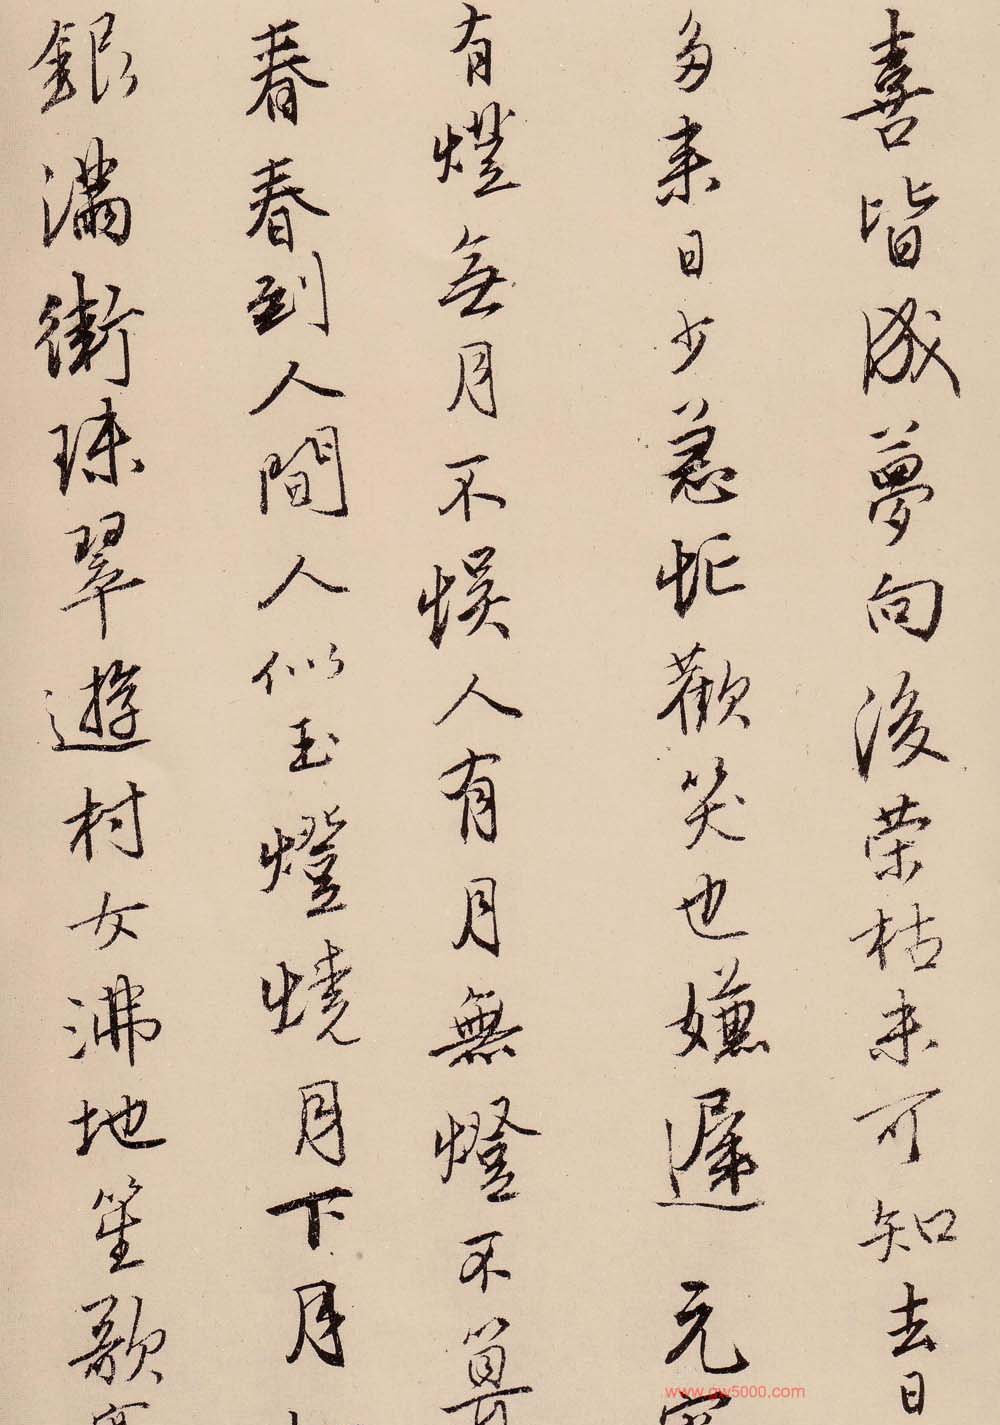 喜皆成夢向後荣枯未可知去日
多来日少急忙歡笑也嫌遲 元宵
有燈無月不悞人有月無燈不算
春春到人間人似玉燈燒月下月
銀滿街珠翠遊村女沸地笙歌
www.gw5000.com